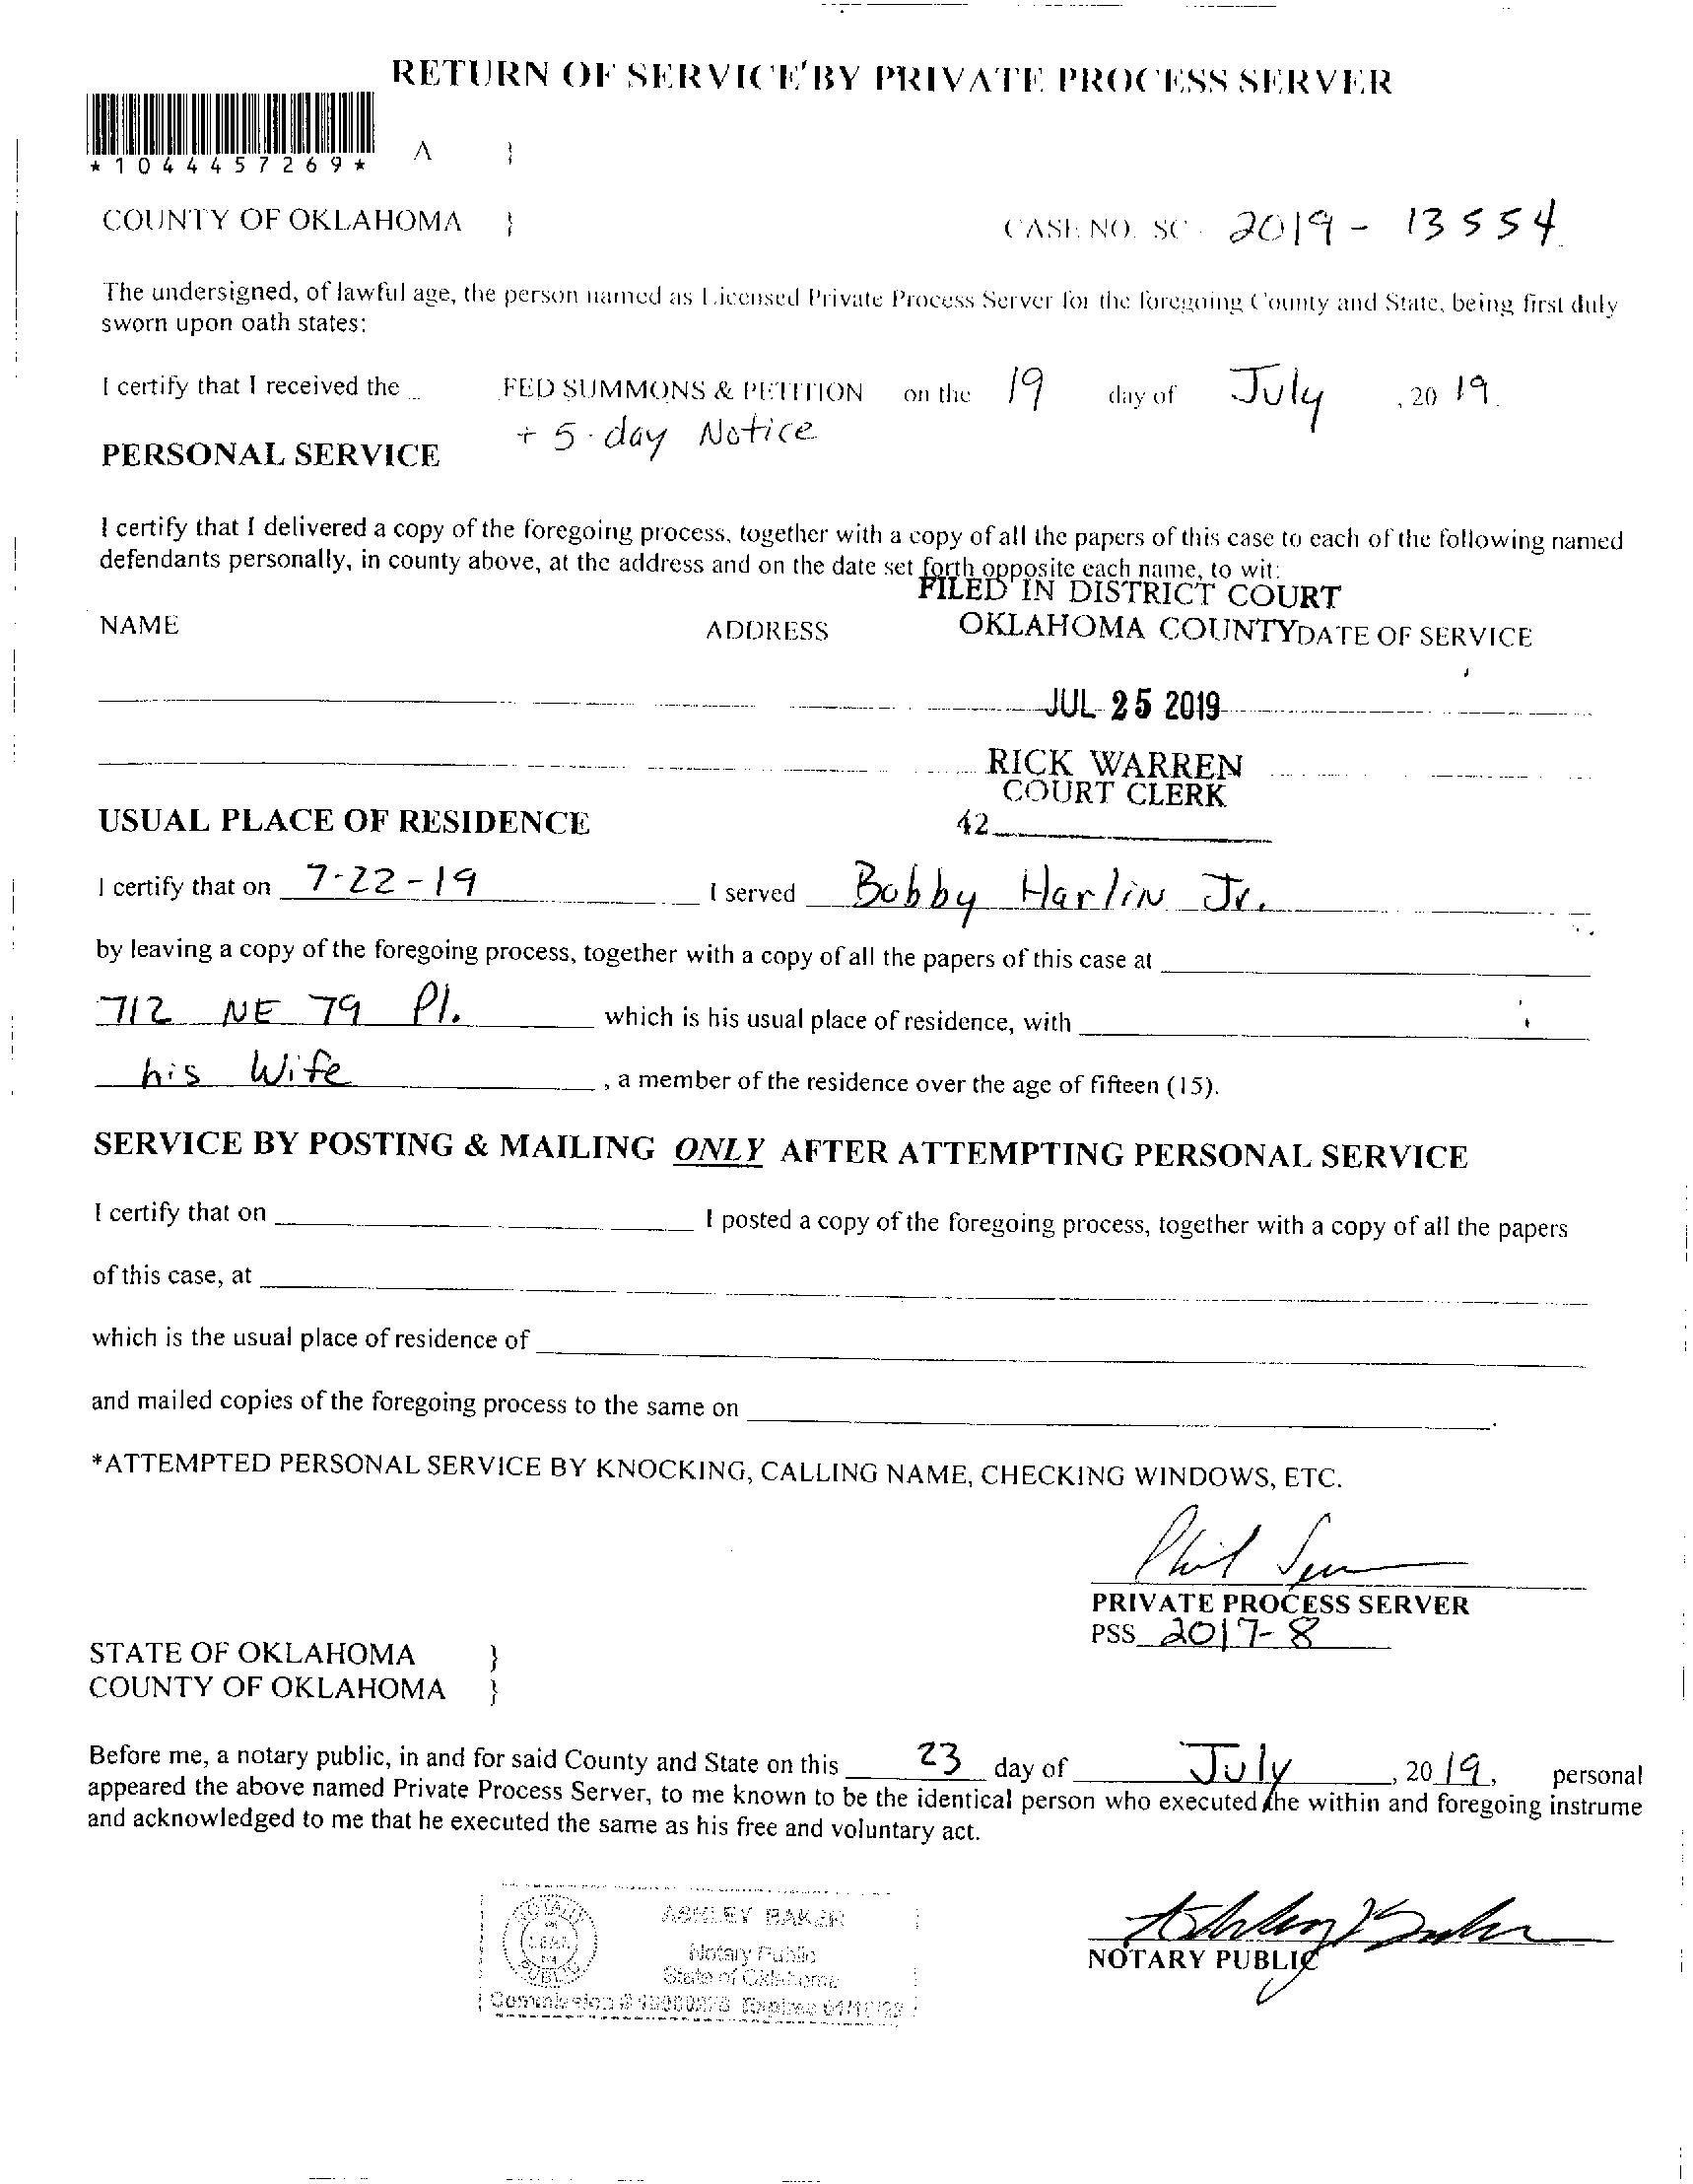 RETURN OF SERVICE BY PRIVATE PROCESS SERVER
*1044457269*
A }
COUNTY OF OKLAHOMA } CASE NO. SC - 2019 - 13554
The undersigned, of lawful age, the person named as Licensed Private Process Server for the foregoing County and State, being first duly
sworn upon oath states:
I certify that I received the FED SUMMONS & PETITION on the 19 day of July , 20 19.
+ 5-day Notice
PERSONAL SERVICE
I certify that I delivered a copy of the foregoing process, together with a copy of all the papers of this case to each of the following named
defendants personally, in county above, at the address and on the date set forth opposite each name, to wit:
FILED IN DISTRICT COURT
NAME ADDRESS OKLAHOMA COUNTY DATE OF SERVICE
JUL 25 2019
RICK WARREN
COURT CLERK
USUAL PLACE OF RESIDENCE 42
I certify that on 7-22-19 I served Bobby Harlin Jr.
by leaving a copy of the foregoing process, together with a copy of all the papers of this case at
712 NE 79 Pl. which is his usual place of residence, with
his Wife , a member of the residence over the age of fifteen (15).
SERVICE BY POSTING & MAILING ONLY AFTER ATTEMPTING PERSONAL SERVICE
I certify that on I posted a copy of the foregoing process, together with a copy of all the papers
of this case, at
which is the usual place of residence of
and mailed copies of the foregoing process to the same on .
*ATTEMPTED PERSONAL SERVICE BY KNOCKING, CALLING NAME, CHECKING WINDOWS, ETC.
Phil
PRIVATE PROCESS SERVER
PSS 2017-8
STATE OF OKLAHOMA }
COUNTY OF OKLAHOMA }
Before me, a notary public, in and for said County and State on this 23 day of July , 20 19, personal
appeared the above named Private Process Server, to me known to be the identical person who executed the within and foregoing instrume
and acknowledged to me that he executed the same as his free and voluntary act.
ASHLEY BAKER
Notary Public
State of Oklahoma
Commission # Expires
Ashley Baker
NOTARY PUBLIC